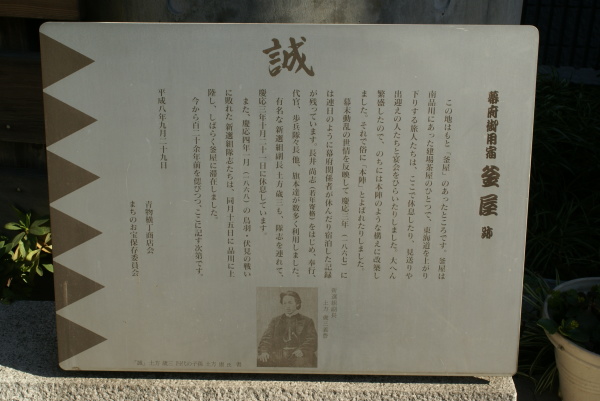 誠
幕府御用宿 釜屋 跡
この地はもと、「釜屋」のあったところです。釜屋は
南品川にあった建場茶屋のひとつで、東海道を上がり
下りする旅人たちは、ここで休息したり、見送りや
出迎えの人たちと宴会をひらいたりしました。大へん
繁盛したので、のちには本陣のような構えに改築し
ました。それで俗に「本陣」とよばれたりしました。
幕末動乱の世情を反映して慶応三年(一八六七)に
は連日のように幕府関係者が休んだり宿泊した記録
が残っています。長井 尚志(若年寄格)をはじめ、奉行、
代官、歩兵隊々長他、旗本達が数多く利用しました。
有名な新選組副長 土方 歳三も、隊志を連れて、
慶応三年十月二十一日に休息しています。
また、慶応四年一月(一八六八)の鳥羽・伏見の戦い
に敗れた新選組隊志たちは、同月十五日に品川に上
陸し、しばらく釜屋に滞在しました。
今から百三十余年前を偲びつつ、ここに記す次第です。
平成八年九月二十九日
青物横丁商店会
まちのお宝保存委員会
新選組副長
土方 歳三